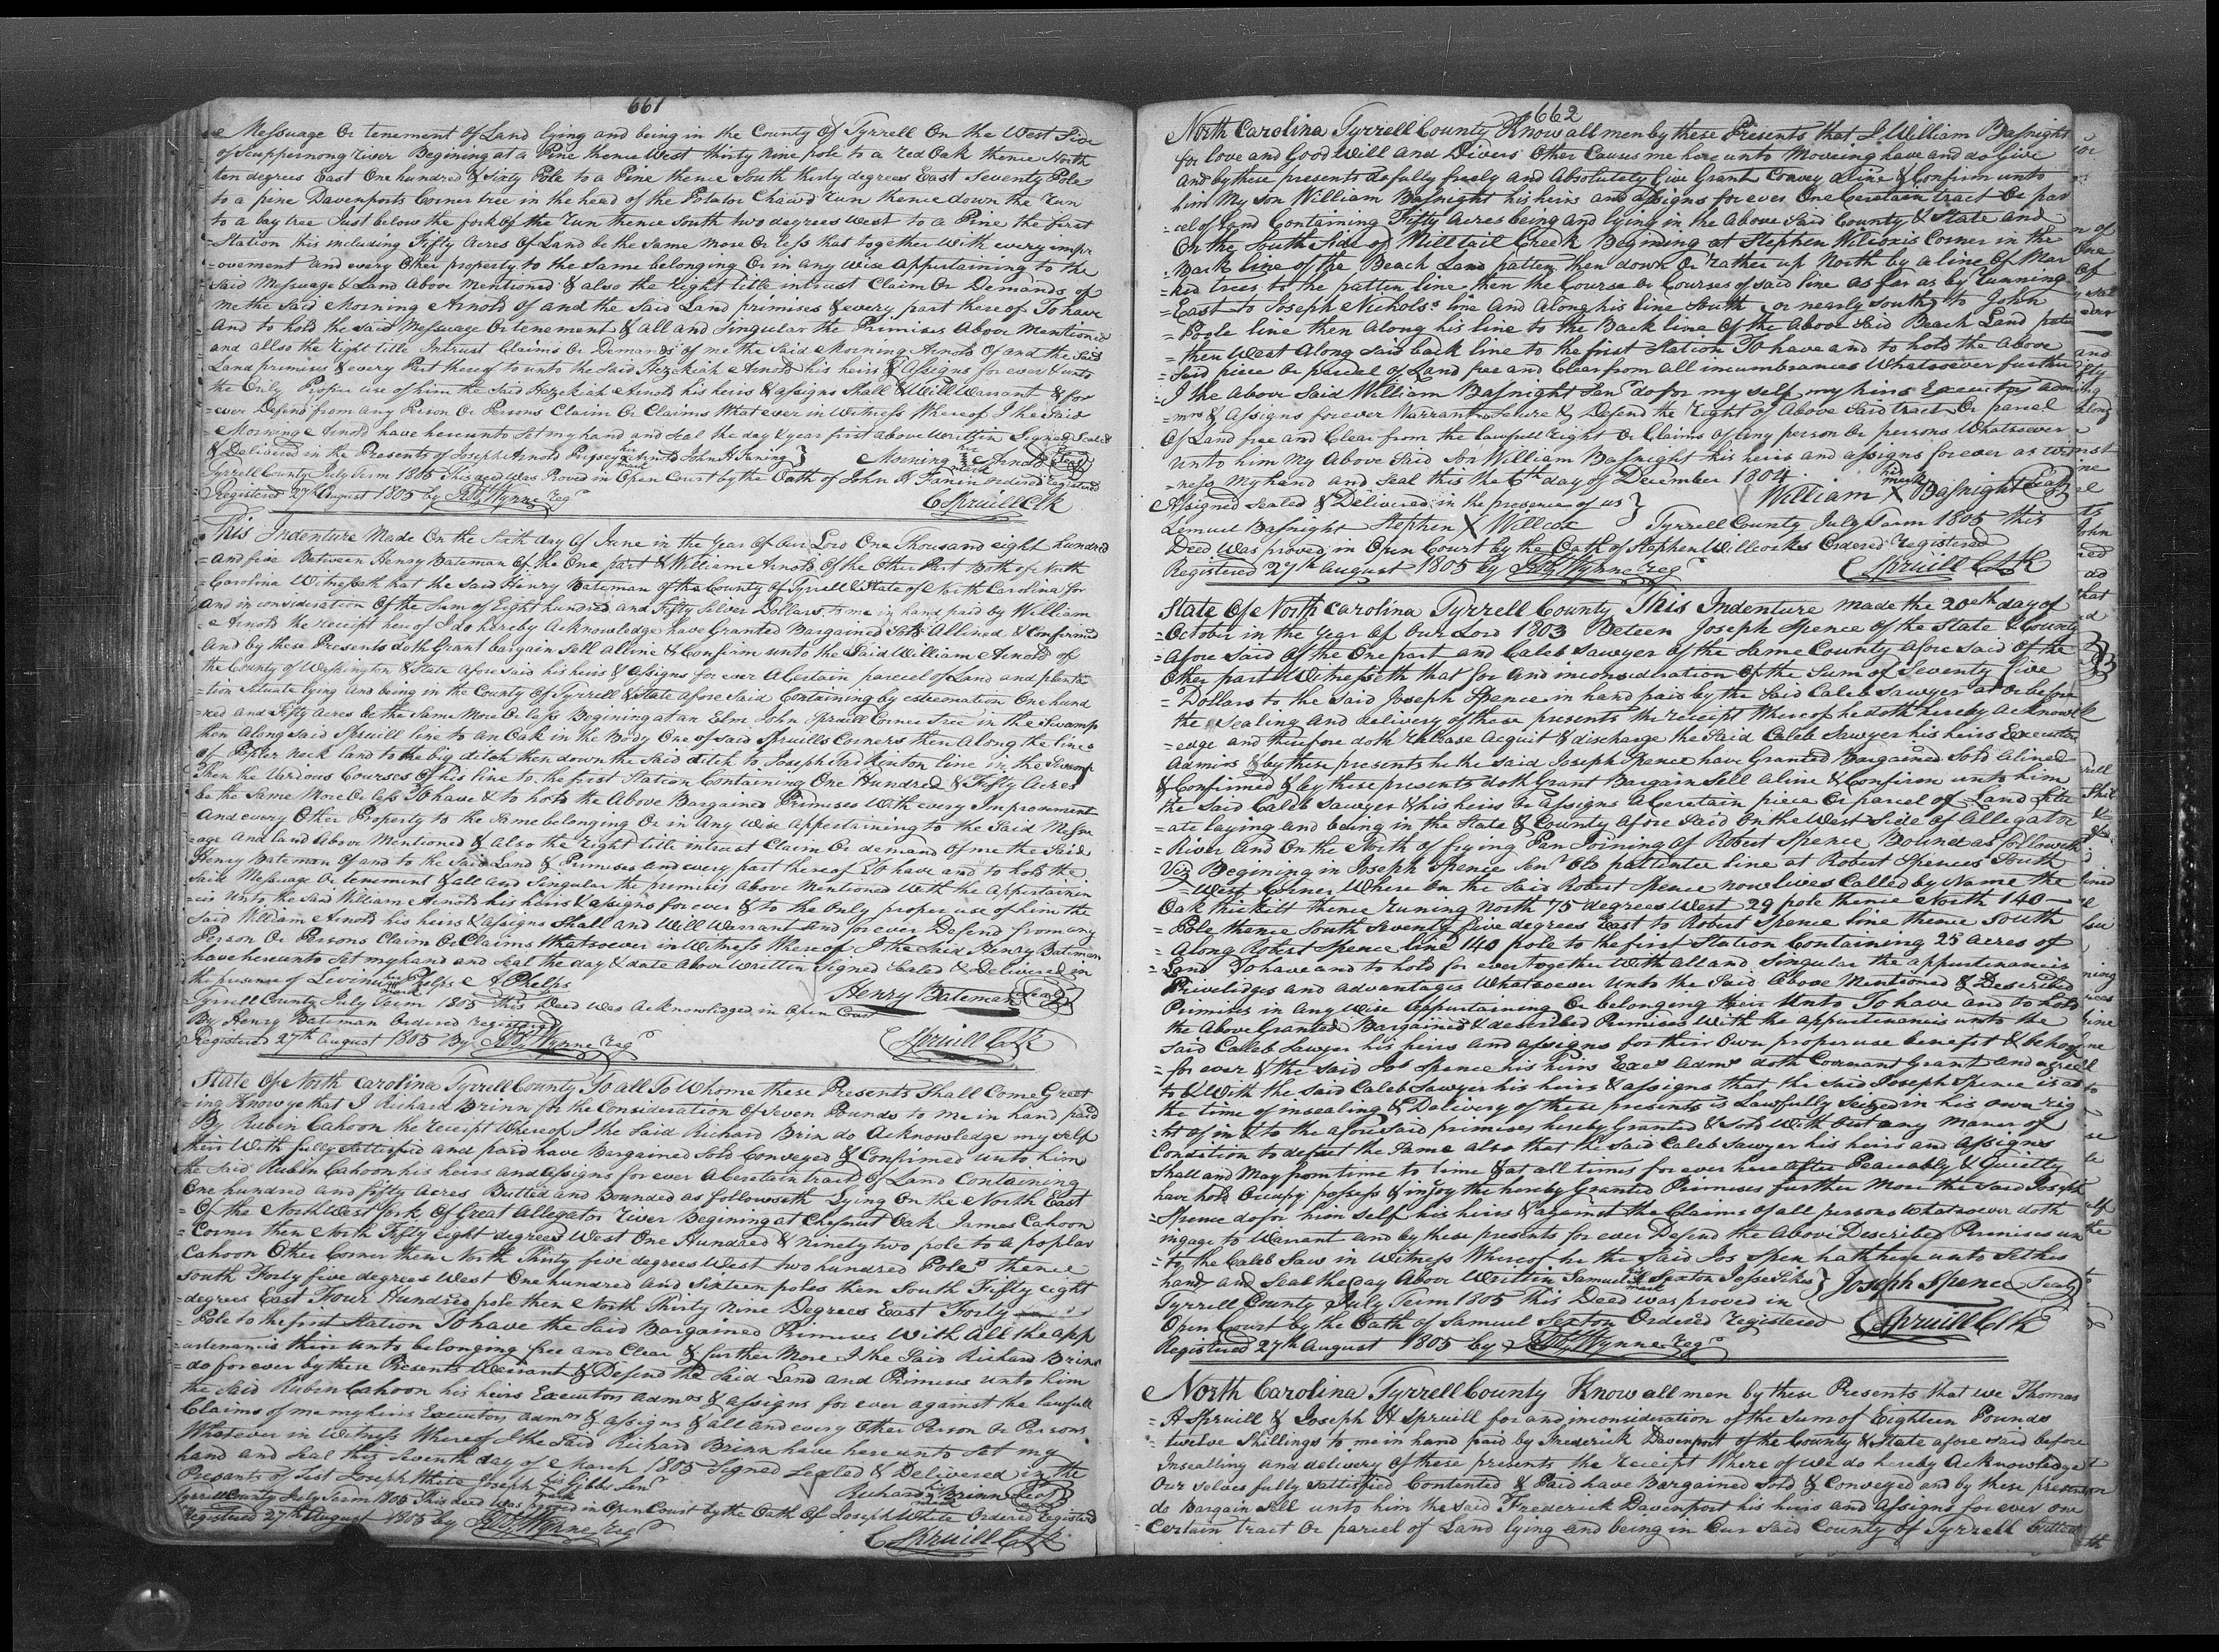 661
Messuage Or tenement Of Land lying and being in the County Of Tyrrell On the West Side
of Scuppernong river Begining at a Pine thence West thirty nine pole to a red Oak thence North
ten degrees East One hundred & Sixty Pole to a Pine thence South thirty degrees East Seventy Poles
to a pine Davenports Corner tree in the head of the Potator run thence down the run
to a bay tree Just below the fork of the run thence South two degrees West to a Pine the first
Station this including Fifty Acres Of Land be the Same More Or less that together With every impr
=ovement and every Other property to the Same belonging Or in any Wise Appurtaining to the
Said Messuage & Land Above Mentioned & also the right title intrust Claim Or Demands of
me the Said Morning Arnold of and the Said Land primises & every part there of To have
And to hold the Said Messuage Or tenement & all and Singular the Primises Above Mentioned
and allso the right title Intrust Claims Or Demands of me the Said Morning Arnold Of and the Said
Land primises & every Part there of to unto the Said Hezekiah Arnold his heirs & Assigns for ever & unto
the Only Proper use of him the Said Hezekiah Arnold his heirs & assigns Shall & Will Warrant & for
=ever Defend from any Person Or Persons Claim Or Claims What ever in Witness Whereof I the Said
Morning Arnold have hereunto Set my hand and Seal the day & year first above Written Signed Seald
& Delivered in the Presents of Joseph Arnold his mark Arnold John H } Morning her mark Arnold Seal
Tyrrell County July Term 1805 This deed Was Proved in Open Court by the Oath of John H Ordered Registered
Registered 27th August 1805 by Wynne Regr C Spruill Clk
This Indenture Made On the Sixth day Of June in the Year Of Our Lord One Thousand eight hundred
=and five Between Henry Bateman Of the One part & William Arnold Of the Other Part Both of North
=Carolina Witnesseth that the Said Henry Bateman of the County of Tyrrell & State of North Carolina for
and in consideration Of the Sum of Eight hundred and Fifty Silver Dollars to me in hand paid by William
Arnold the receipt here of I do hereby Acknowledge have Granted Bargained Sold Allined & Confirmed
And by these Presents doth Grant bargain Sell Alline & Confirm unto the Said William Arnold of
the County of Washington & State afore Said his heirs & Assigns for ever A Certain parcel of Land and planta
=tion Situate lying and being in the County Of Tyrrell & State afore Said Containing by esteemation One hund
=red and Fifty acres be the Same More Or less Begining at an Elm John Spruill Corner Tree in the Swamp
then Along Said Spruill line to An Oak in the Body One of Said Spruills Corners then Along the lines
of Popler neck land to the big ditch then down the Said ditch to Joseph line in the Swamp
Then the Various Courses Of his line to the first Station Containing One Hundred & Fifty Acres
be the Same More Or less To have & to hold the Above Bargained Primises With every Improvement
And every Other Property to the Same belonging Or in Any Wise Appertaining to the Said Messu
=age And land Above Mentioned & also the right title intrust Claim Or demand Of me the Said
Henry Bateman Of and to the Said Land & Primises and every part there of To have and to hold the
Said Messuage Or tenement & all and Singular the primises above Mentioned With the Appertainin
=ces Unto the Said William Arnold his heirs & assigns for ever & to the Only proper use of him the
Said William Arnold his heirs & assigns Shall and Will Warrant And for ever Defend from any
Person Or Persons Claim Or Claims Whatsoever in Witness Where of I the Said Henry Bateman
have hereunto Set my hand and Seal the day & date Above Written Signed Sealed & Delivered in
the presence of Levina her mark Phelps A Phelps Henry Bateman Seal
Tyrrell County July Term 1805 this Deed Was Acknowledged in Open Court
By Henry Bateman Ordered registered
Registered 27th August 1805 By Wynne Regr C Spruill Clk
State Of North Carolina Tyrrell County To all To Whome these Presents Shall Come Greet
=ing Know ye that I Richard Brinn for the Consideration Of Seven Pounds to me in hand paid
By Rubin Cahoon the receipt Whereof I the Said Richard Brin do Acknowledge my Self
their With fully Sattisfied and paid have Bargained Sold Conveyed & Confirmed unto him
the Said Rubin Cahoon his heirs and Assigns for ever A Ceretain tract Of Land Containing
One hundred and fifty Acres Butted and Bounded as followeth Lying On the North East
=Of the North West fork Of Great Allegator river Begining at Chesnut Oak James Cahoon
=Corner then North Fifty eight degrees West One Hundred & ninety two pole to a poplar
Cahoon Other Corner then North Thirty five degrees West two hundred Poles thence
South Forty five degrees West One hundred and Sixteen poles then South Fifty eight
=degrees East Four Hundred pole then North Thirty Nine Degrees East Forty
=Pole to the first Station To have the Said Bargained Primises With All the app
=urtenances thereunto belonging free and Clear & further More I the Said Richard Brinn
=do forever by these Presents Warrant & Defend the Said Land and Primises unto him
the Said Rubin Cahoon his heirs Executors Admrs & assigns for ever against the lawfull
Claims of me my heirs Executors admrs & assigns & all and every Other Person Or Persons
Whatever in Witness Where of I the Said Richard Brinn have here unto Set my
hand and Seal this Seventh day of March 1805 Signed Sealed & Delivered in the
Presants of Test Joseph White Joseph his mark Gibbs Senr Richard his mark Brinn Seal
Tyrrell County July Term 1805 This deed Was proved in Open Court by the Oath Of Joseph White Ordered Registered
Registered 27th August 1805 by Wynne Regr C Spruill Clk
662
North Carolina Tyrrell County Know all men by these Presents that I William Basnight
for love and Good Will and Divers Other Causes me here unto Moveing have and do Give
and by these presents do fully freely and Absolutely Give Grant Convey Aline & Confirm unto
him My Son William Basnight his heirs and assigns for ever One Ceretain tract Or par
=cel of Land Containing Fifty Acres being and lying in the Above Said County & State and
On the South Side of Milltail Creek Begining at Stephen Wilcoxis Corner in the
=Back line of the Beach Land patten then down Or rather up North by a line Of Mar
=ked trees to the patten line then the Course Or Courses of said line as far as by running
=East to Joseph Nichols's line And along his line South Or nearly South to John
=Poole line then along his line to the Back line Of the Above Said Beach Land pate
=then West Along Said back line to the first Station To have and to hold the Above
=Said piece Or parcel of Land free and Clear from All incumbrances Whatsoever further
=I the Above Said William Basnight Senr do for my self my heirs Executors Adm
=mrs & Assigns forever Warrant Secure & Defend the right of Above Said tract Or parcel
Of Land free and Clear from the lawfull right Or Claims of any person Or persons Whatsoever
unto him My Above Said Son William Basnight his heirs and assigns forever as wit
=ness My hand and Seal this the 6th day of December 1804
Assigned Sealed & Delivered in the presence of us } William his mark X Basnight Seal
Lemuel Basnight Stephen X Willcox Tyrrell County July Term 1805 this
Deed Was proved in Open Court by the Oath of Stephen Willcocks Ordered Registered
Registered 27th August 1805 by Wynne Regr C Spruill Clk
State Of North Carolina Tyrrell County This Indenture made the 20th day of
=October in the Year Of Our Lord 1803 Beteen Joseph Spence of the State & County
=afore Said Of the One part and Caleb Sawyer of the Same County afore Said of the
Other part Witnesseth that for And inconsideration Of the Sum of Seventy five
=Dollars to the Said Joseph Spence in hand paid by the Said Caleb Sawyer at Or before
the Sealing And delivery of these presents the receipt Whereof he doth hereby Acknowl
=edge and therefore doth release Acquit & discharge the Said Caleb Sawyer his heirs Executors
Admirs & by these presents he the Said Joseph Spence have Granted Bargained Sold Alined
& Confirmed & by these presents doth Grant Bargain Sell Aline & Confirm unto him
the Said Caleb Sawyer & his heirs Or Assigns A Ceretain piece Or parcel of Land Situ
=ate laying and being in the State & County Afore Said On the West Side of Allegator
=River And On the North of frying Pan Joining Of Robert Spence Bound as followeth
Viz Begining in Joseph Spence Senr Old pattenter line at Robert Spences South
=West Corner Where On the Said Robert Spence now lives Called by Name the
Oak thickitt thence runing North 75 degrees West 29 pole thence North 140
=Pole thence South Seventy five degrees East to Robert Spence line thence South
=Along Robert Spence line 140 pole to the first Station Containing 25 Acres of
=Land To have and to hold for ever together With all and Singular the appurtenances
Priveledges and advantages Whatsoever Unto the Said Above Mentioned & Described
Primises in Any Wise Appurtaining Or belonging their Unto To have and to hold
the Above Granted Bargained & described Primises With the appurtenances unto the
Said Caleb Sawyer his heirs and assigns for their Own proper use benefit & behoof
=for ever & the Said Jos Spence his heirs Exes adms doth Covenant Grant and agree
to & With the Said Caleb Sawyer his heirs & assigns that the Said Joseph Spence is at
the time of insealing & Delivery of these presents is Lawfully Seized in his own rig
=ht of in & to the afore Said primises hereby Granted & Sold With Out any Maner of
Condition to defect the Same also that the Said Caleb Sawyer his heirs and Assigns
Shall and May from time to time & at all times for ever here after Peaceably & Quietly
have hold Occupy possess & injoy the hereby Granted Primises further More the Said Joseph
=Spence do for him Self his heirs & against the Claims of all persons Whatsoever doth
ingage to Warrant and by these presents for ever Defend the Above Described Primises un
=to the Caleb Saw in Witness Where of he the Said Jos Spen hath here unto Set his
hand and Seal the Day Above Written Samuel his mark Sexton Jesse } Joseph Spence Seal
Tyrrell County July Term 1805 this Deed was proved in
Open Court by the Oath of Samuel Sexton Ordered registered C Spruill Clk
Registered 27th August 1805 by Wynne Regr
North Carolina Tyrrell County Know all men by these Presents that we Thomas
=H Spruill & Joseph H Spruill for and inconsideration of the Sum of Eighteen Pounds
=twelve Shillings to me in hand paid by Frederick Davenport of the County & State afore said before
Insealling and delivery of these presents the receipt Where of we do hereby Acknowledge
Our Selves fully Sattisfied Contented & Paid have Bargained Sold & Conveyed and by these presents
do Bargain Sell unto him the Said Frederick Davenport his heirs and Assigns for ever one
Certain tract Or parcel of Land lying and being in Our Said County of Tyrrell butted